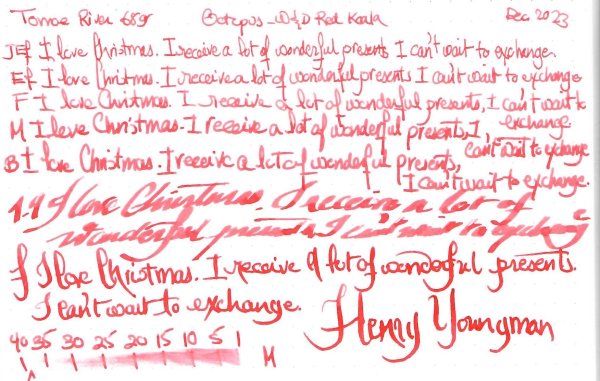 Tomoe River 68gr Octopus W&D Red Koala Dec 2023
JEF I love Christmas. I receive a lot of wonderful presents I can't wait to exchange.
EF I love Christmas. I receive a lot of wonderful presents I can't wait to exchange
F I love Christmas. I receive a lot of wonderful presents, I can't wait to exchange
M I love Christmas. I receive a lot of wonderful presents, I can't wait to exchange
B I love Christmas. I receive a lot of wonderful presents, I can't wait to exchange.
1.4 I love Christmas. I receive a lot of
wonderful presents I can't wait to exchange
f I love Christmas. I receive a lot of wonderful presents.
I can't wait to exchange.
Henry Youngman
40 35 30 25 20 15 10 5 1
M